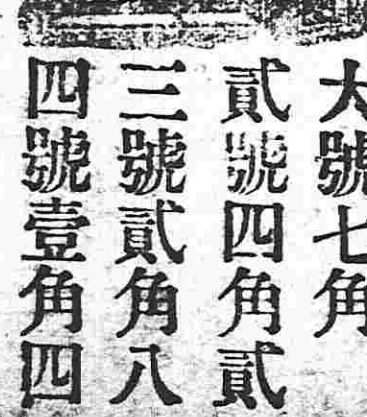 大號七角
貳號四角貳
三號貳角八
四號壹角四